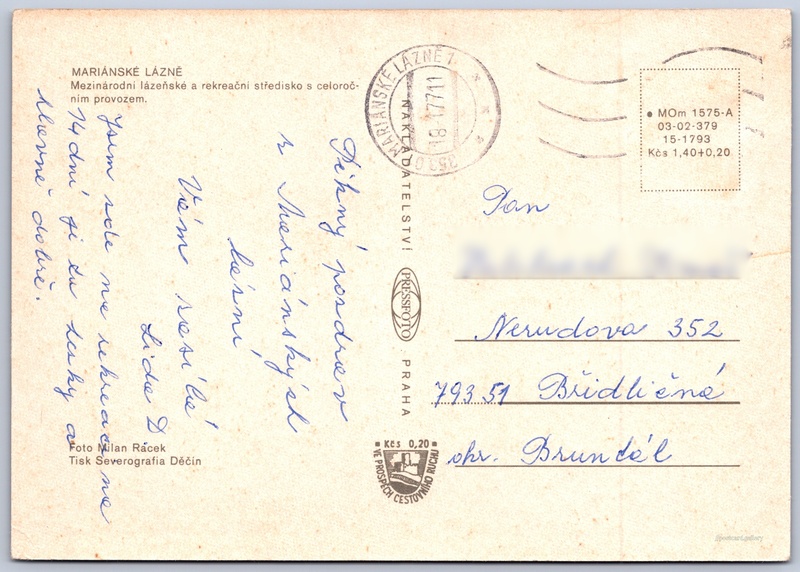 MARIÁNSKÉ LÁZNĚ
Mezinárodní lázeňské a rekreační středisko s celoroč-
ním provozem.
Pěkný pozdrav
z Mariánských
lázní
Vám zasílá
Lida D.
Jsem zde na rekreaci na
14 dní je tu hezky a
hlavně dobře.
Foto Milan Rácek
Tisk Severografia Děčín
MARIÁNSKÉ LÁZNĚ 1
353 01
NAKLADATELSTVÍ
PRESSFOTO
PRAHA
Kčs 0,20
VE PROSPĚCH CESTOVNÍHO RUCHU
MOm 1575-A
03-02-379
15-1793
Kčs 1,40+0,20
Pan
Nerudova 352
793 51 Břidličná
okr. Bruntál